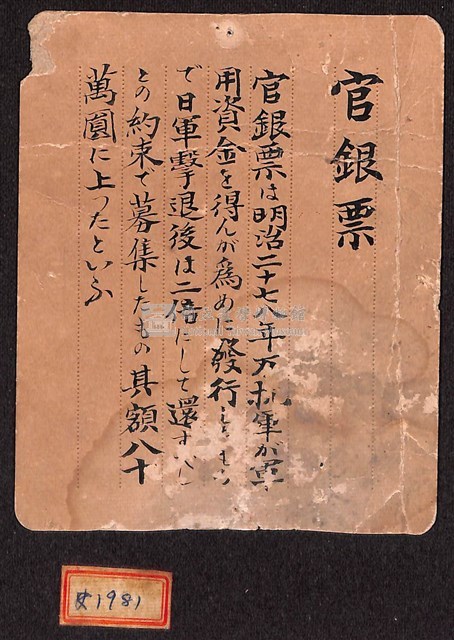 官銀票
官銀票は明治二十七八年
用資金を得んが為めに發行
で日軍擊退後は二倍にして還す
との約束で募集したもの其額八十
萬圓に上つたといふ
史1981